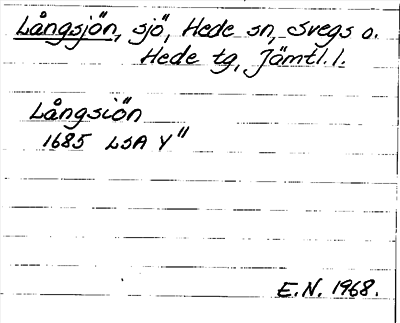 Långsjön, sjö, Hede sn, Svegs o.
Hede tg, Jämtl. l.
Långsiön
1685 LSA Y"
E.N. 1968.